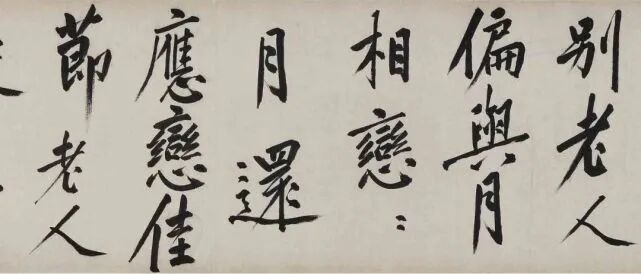 別老人
偏與月
相戀〻
月還
應戀佳
節老人